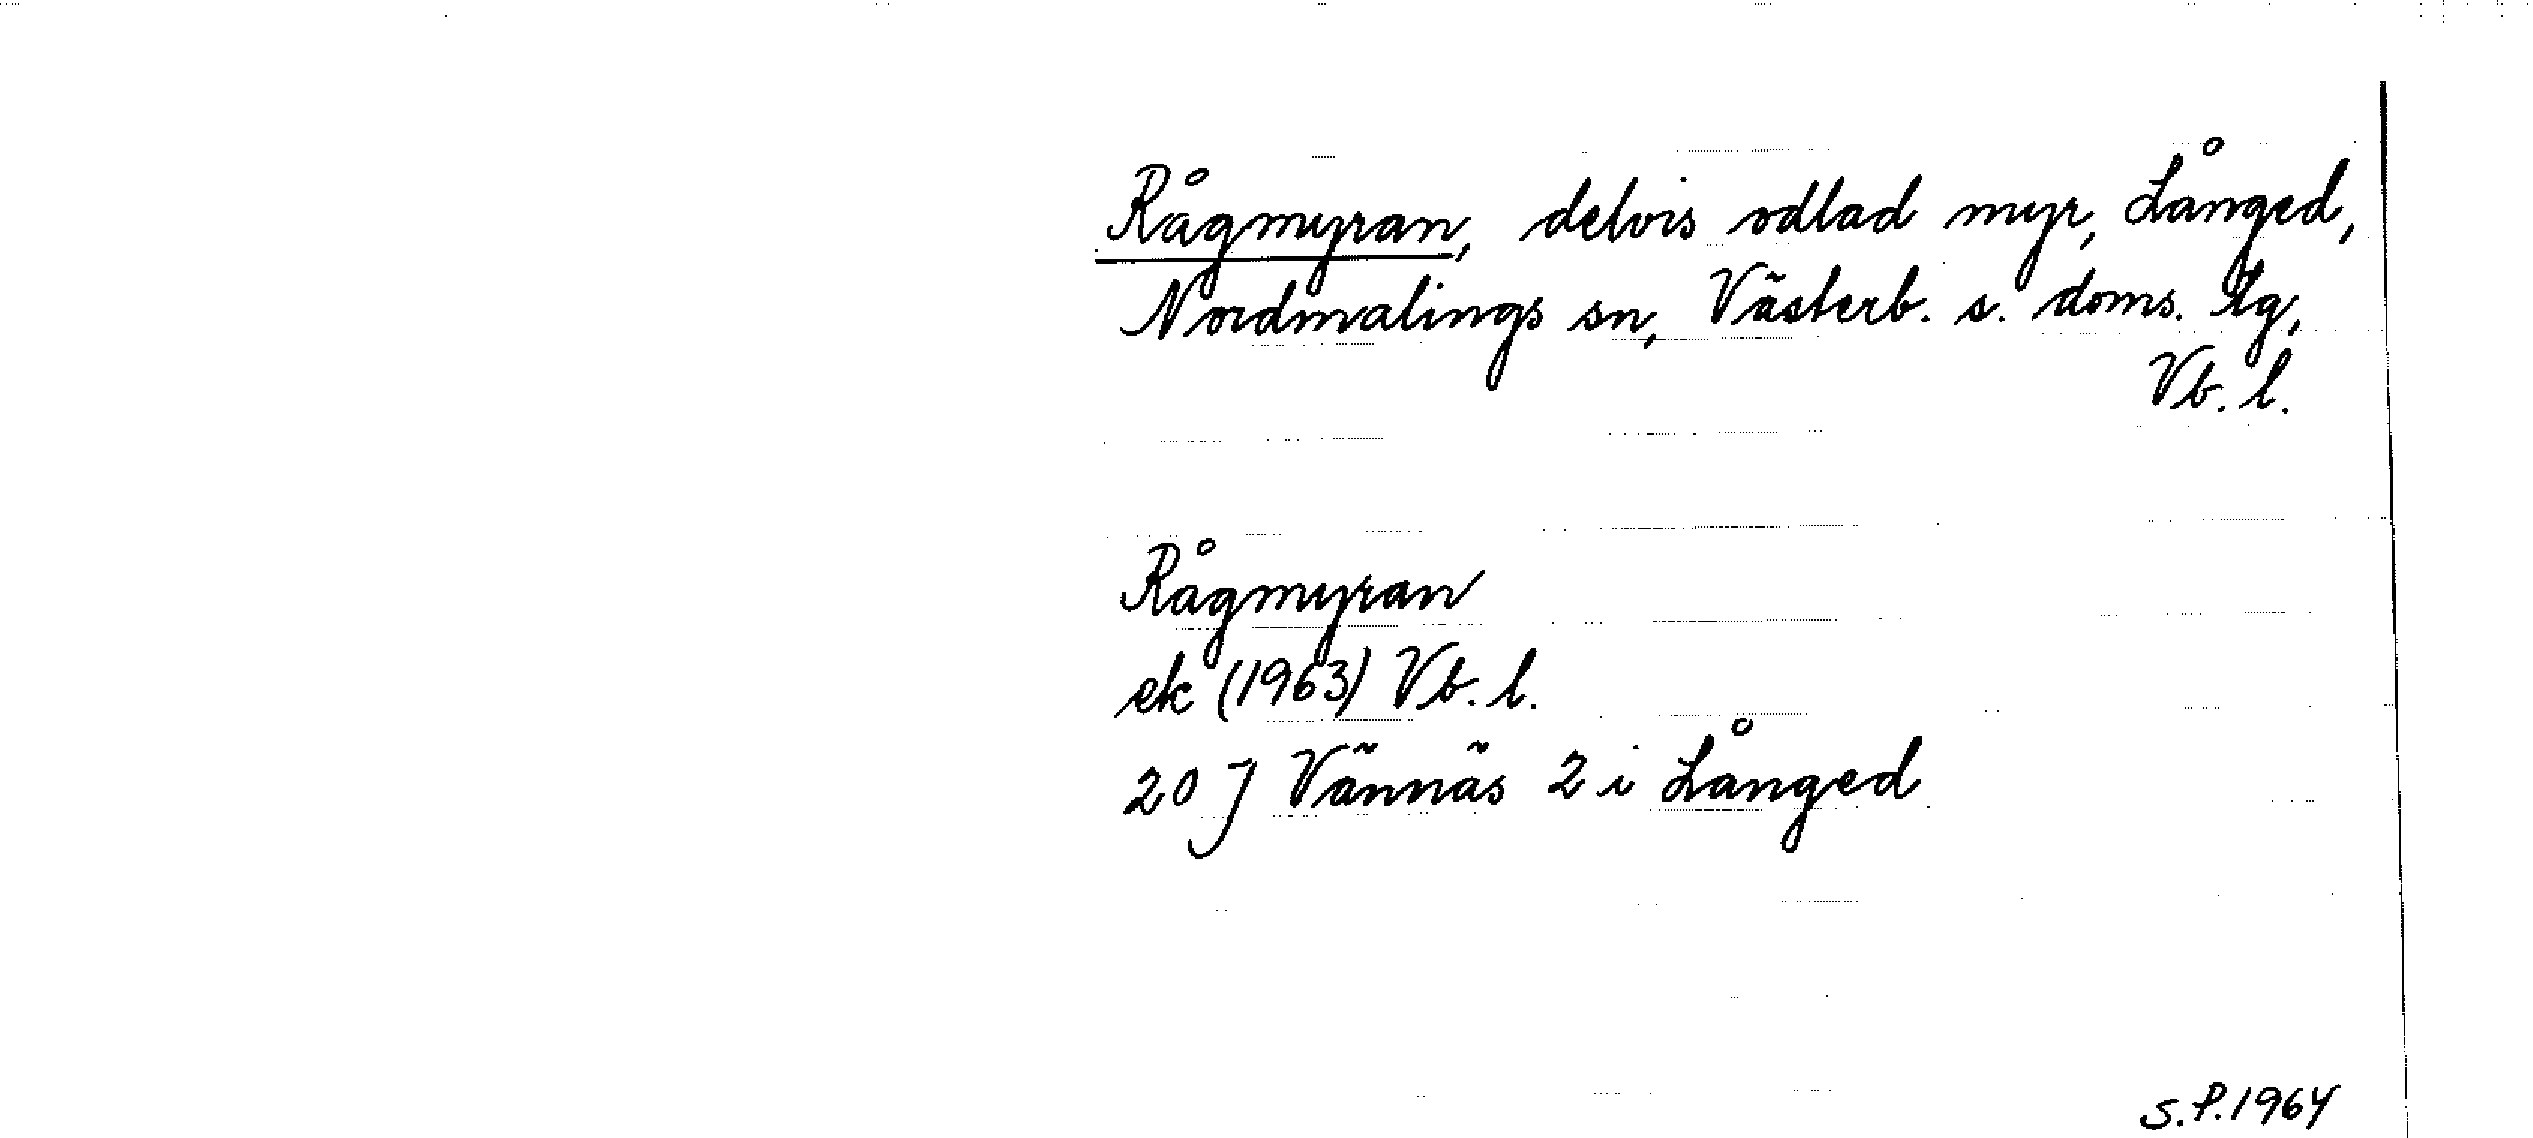 Rågmyran, delvis odlad myr, Långed,
Nordmalings sn, Västerb. s. doms. tg,
Vb. l.
Rågmyran
ek (1963) Vb. l.
20 J Vännäs 2 i Långed
S.P. 1964